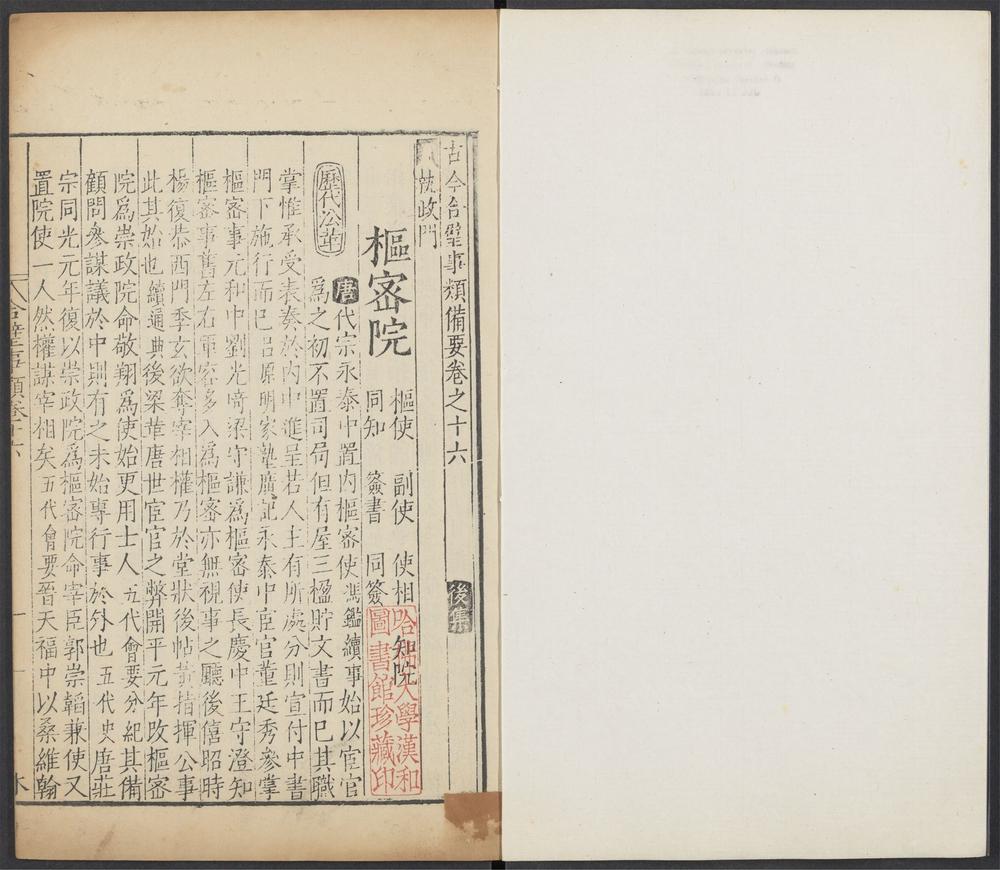 古今合璧事類備要卷之十六 後集
執政門
樞密院 樞使 副使 使相 知院
同知 簽書 同簽
哈佛大學漢和
圖書館珍藏印
歷代沿革 唐代宗永泰中置內樞密使馮鑑續事始以宦官
為之初不置司局但有屋三楹貯文書而已其職
掌惟承受表奏於內中進呈若人主有所處分則宣付中書
門下施行而已呂原明家塾廣記永泰中宦官董廷秀參掌
樞密事元和中劉光琦梁守謙為樞密使長慶中王守澄知
樞密事舊左右軍容多入為樞密亦無視事之廳後僖昭時
楊復恭西門季玄欲奪宰相權乃於堂狀後帖黃指揮公事
此其始也續通典後梁革唐世宦官之弊開平元年改樞密
院爲崇政院命敬翔爲使始更用士人五代會要分紀其備
顧問參謀議於中則有之未始專行事於外也五代史唐莊
宗同光元年復以崇政院爲樞密院命宰臣郭崇韜兼使又
置院使一人然權謀宰相矣五代會要晉天福中以桑維翰
合璧事類卷十六 一